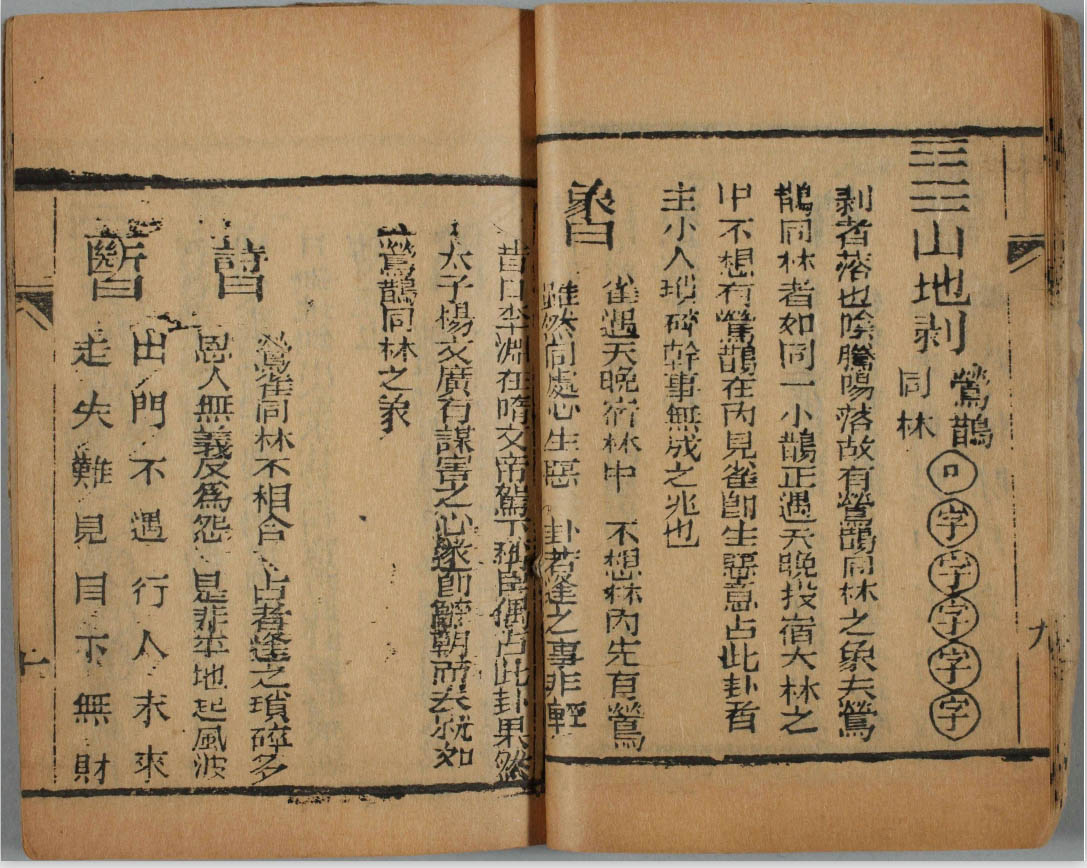 山地剥
鶯鵲
同林
口字字字字字
剥者落也陰騰陽落故有鶯鵲同林之象夫鶯
鵲同林者如同一小鵲正遇天晚投宿大林之
中不想有鶯鵲在內見雀卽生惡意占此卦者
主小人瑣碎幹事無成之兆也
象曰
雀遇天晚宿林中 不想林內先有鶯
雖然同處心生惡 卦若逢之事非輕
昔日李淵在隋文帝駕下稱臣偶占此卦果然
太子楊文廣有謀害之心遂卽辭朝而去就如
鶯鵲同林之象
詩曰
鶯雀同林不相合 占者逢之瑣碎多
恩人無義反爲怨 是非平地起風波
斷曰
出門不遇行人未來
走失難見目下無財
九
十